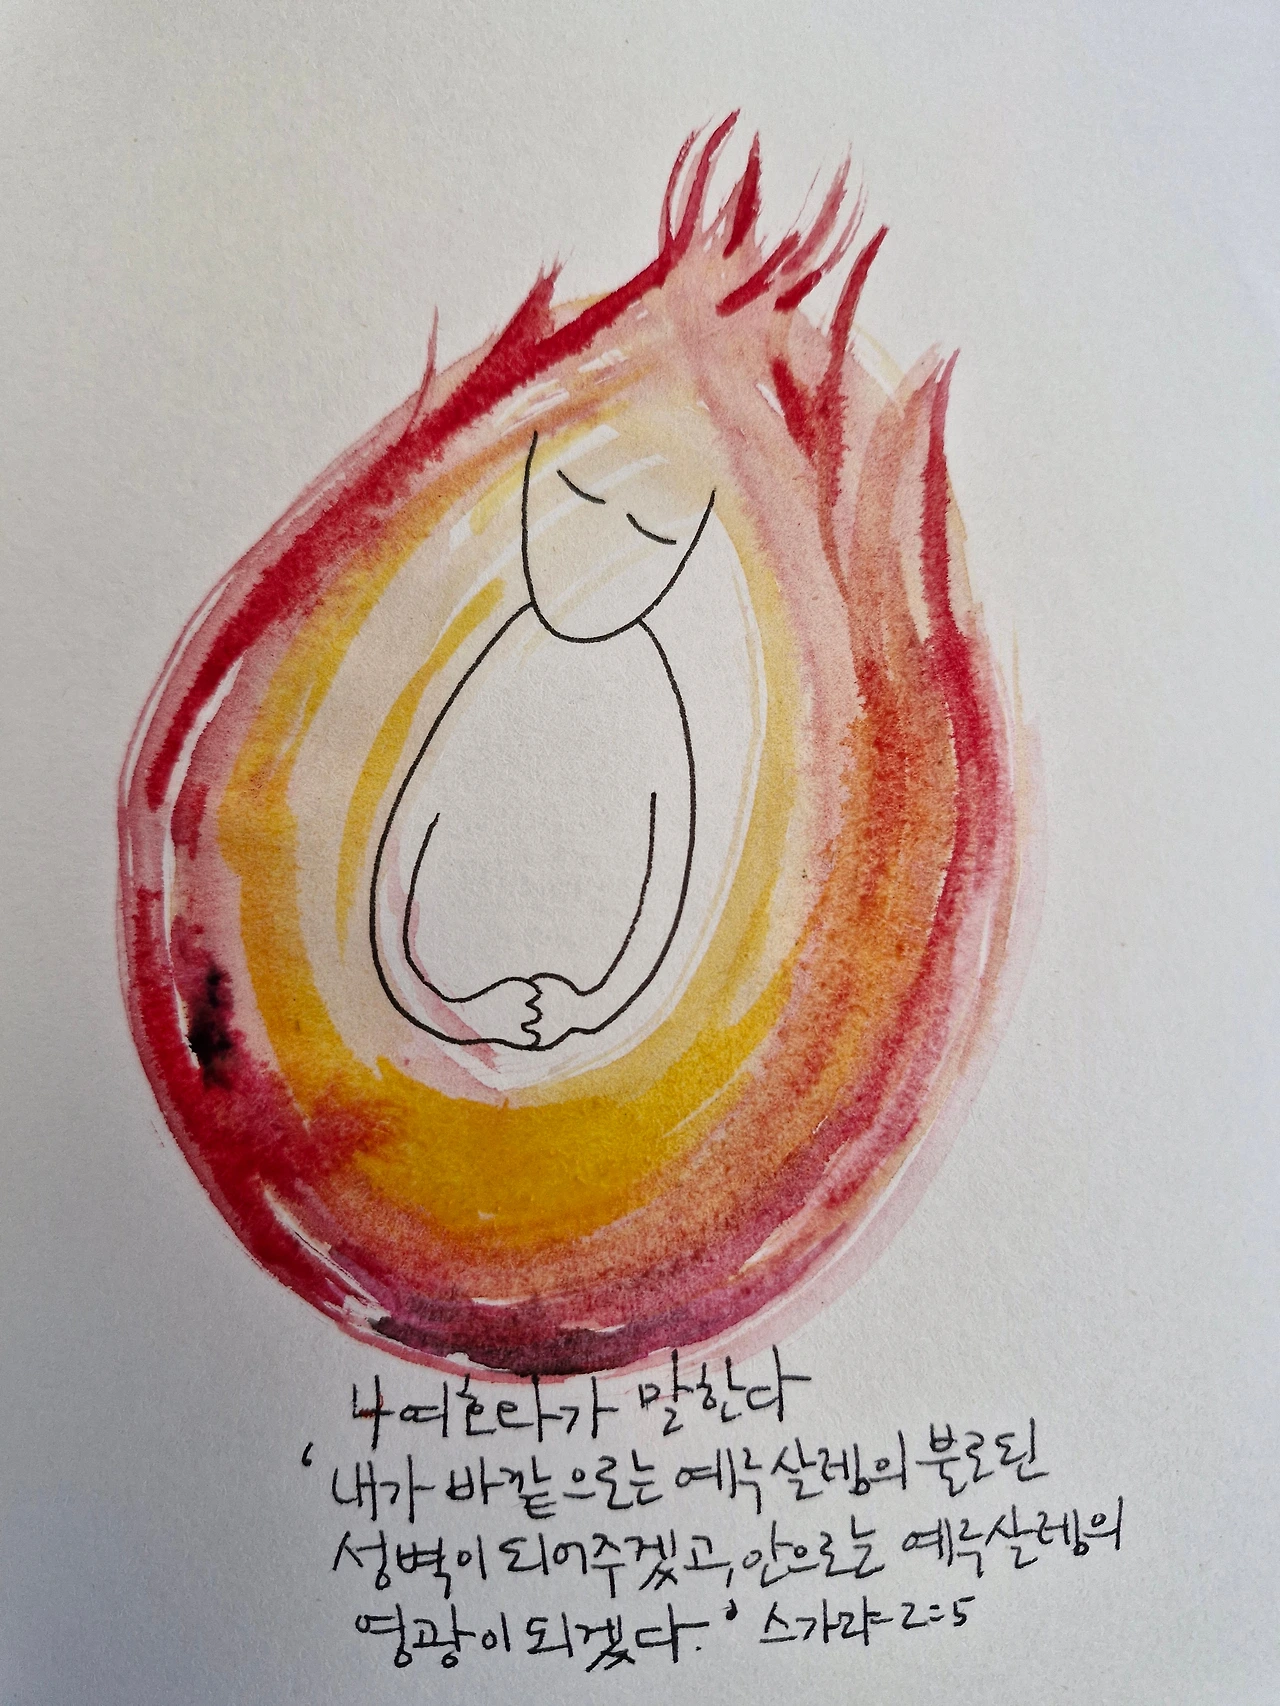 나 여호와가 말한다
'내가 바깥으로는 예루살렘의 불로된
성벽이 되어주겠고, 안으로는 예루살렘의
영광이 되겠다.' 스가랴 2:5